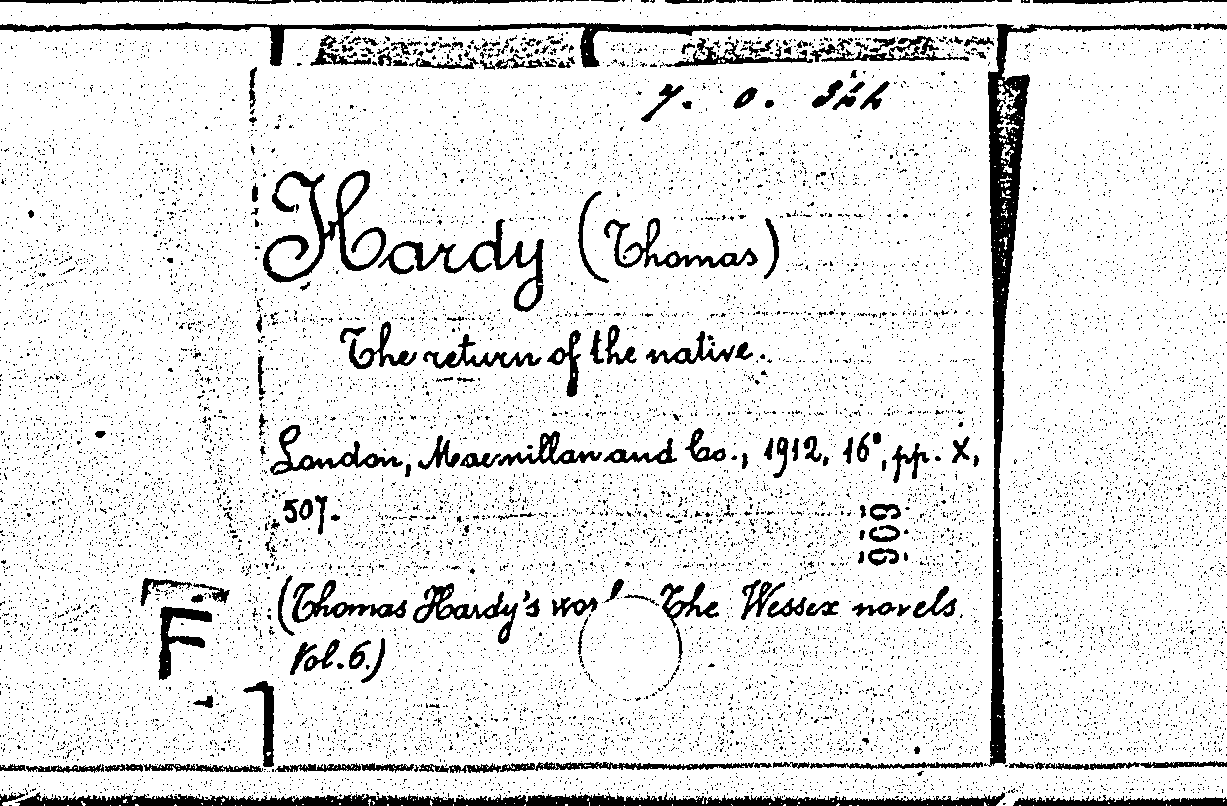 7. 0. 344
Hardy (Thomas)
The return of the native.
London, Macmillan and Co., 1912, 16°, pp. X,
507.
909
(Thomas Hardy's The Wessex novels.
Vol. 6.)
F